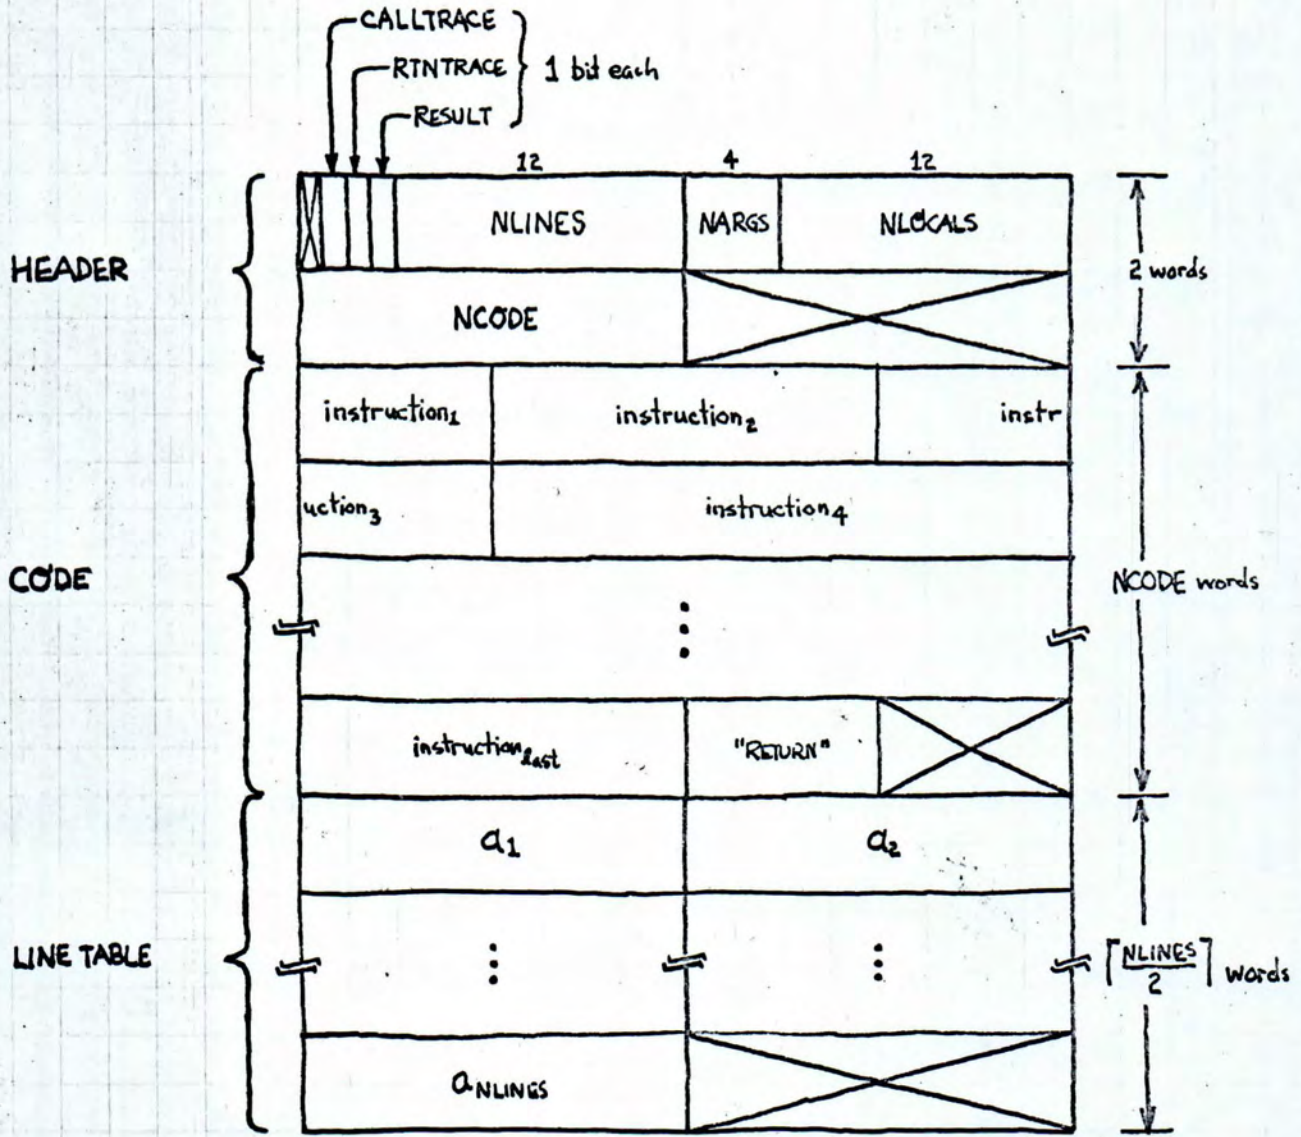 CALLTRACE
RTNTRACE
1 bit each
RESULT
12 4 12
NLINES NARGS NLOCALS
HEADER
2 words
NCODE
instruction₁ instruction₂ instr
uction₃ instruction₄
CODE
NCODE words
instruction_last "RETURN"
a₁ a₂
LINE TABLE
⌈NLINES/2⌉ words
a_NLINES